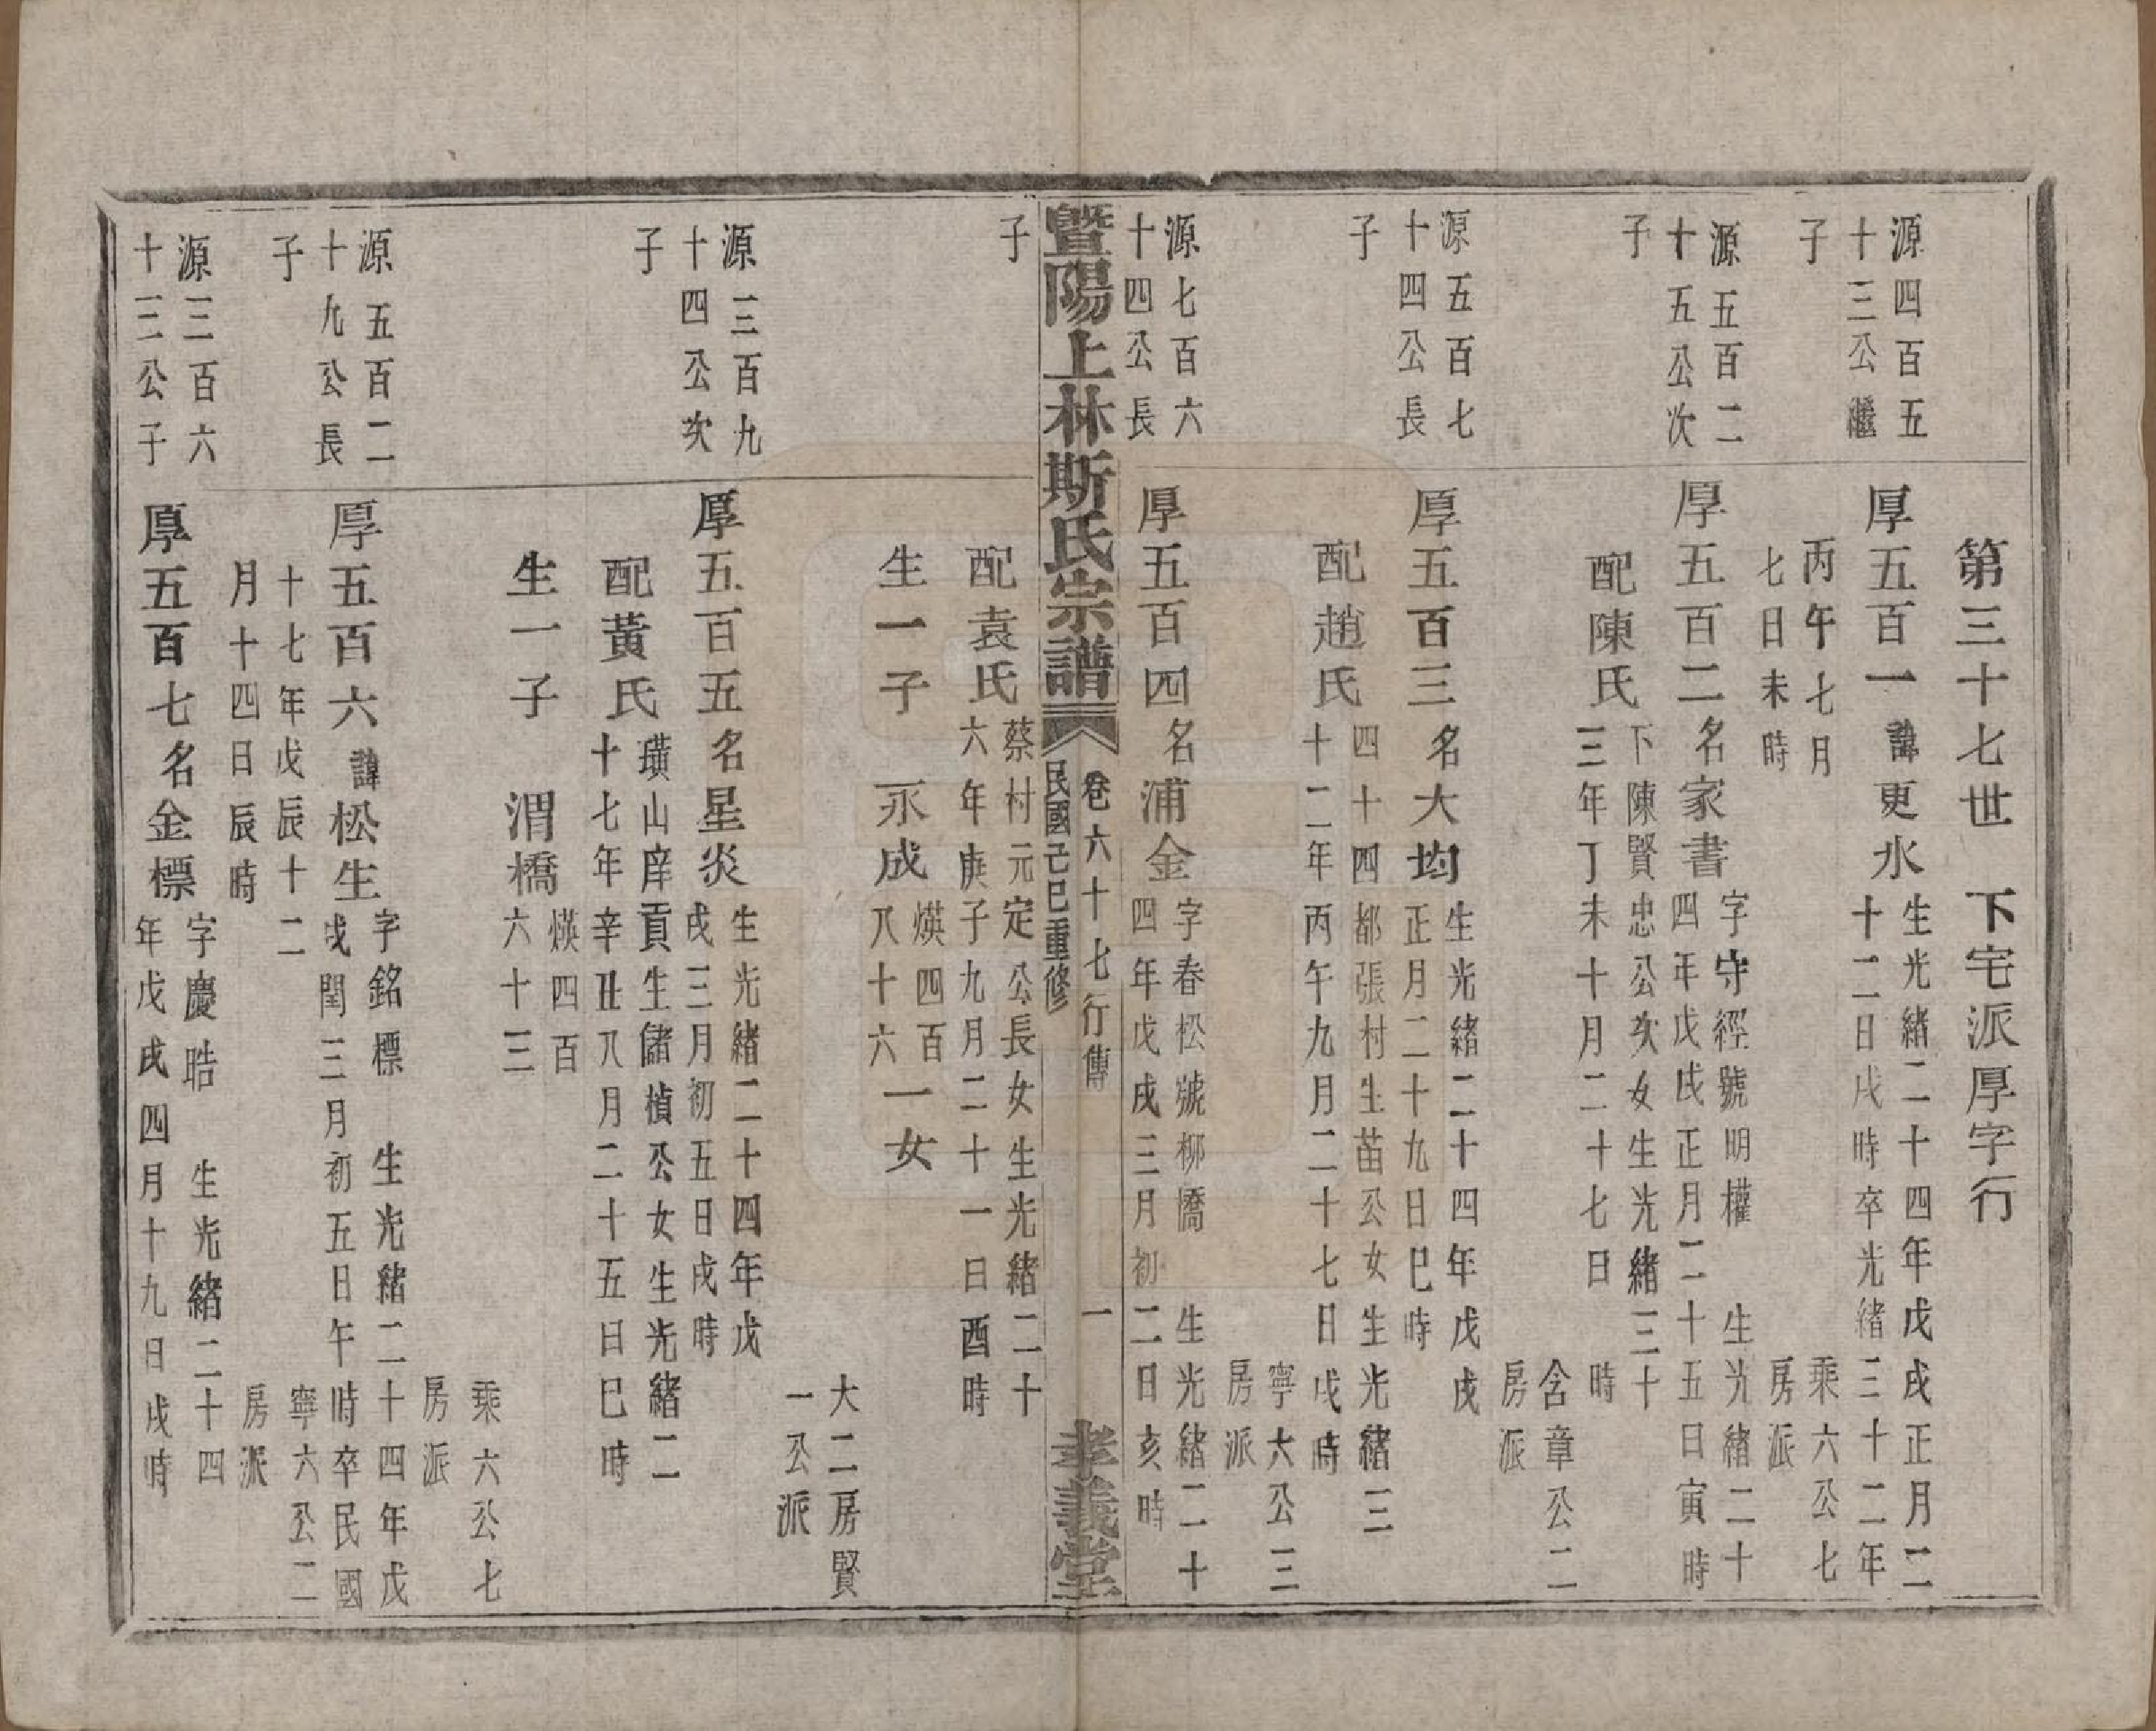 第三十七世　下宅派厚字行
源四百五
十三公繼
子
厚五百一諱更水
生光緒二十四年戊戌正月二
十二日戌時卒光緒三十二年
丙午七月
七日未時
乘六公七
房派
源五百二
十五公次
子
厚五百二名家書
字守經號明權　生光緒二十
四年戊戌正月二十五日寅時
配陳氏
下陳賢忠公次女生光緒三十
三年丁未十月二十七日　時
含章公二
房派
源五百七
十四公長
子
厚五百三名大均
生光緒二十四年戊戌
正月二十九日巳時
配趙氏
四十四都張村生苗公女生光緒三
十二年丙午九月二十七日戌時
寧大公三
房派
源七百六
十四公長
子
厚五百四名浦金
字春松號柳橋　生光緒二十
四年戊戌三月初二日亥時
暨陽上林斯氏宗譜
卷六十七行傳　一
民國己巳重修
孝義堂
配袁氏
蔡村元定公長女生光緒二十
六年庚子九月二十一日酉時
生一子　永成
煐四百
八十六
一女
大二房賢
一公派
源三百九
十四公次
子
厚五百五名星炎
生光緒二十四年戊
戌三月初五日戌時
配黃氏
璜山庠貢生儲楨公女生光緒二
十七年辛丑八月二十五日巳時
生一子　渭橋
煐四百
六十三
乘六公七
房派
源五百二
十九公長
子
厚五百六諱松生
字銘標　生光緒二十四年戊
戌閏三月初五日午時卒民國
十七年戊辰十二
月十四日辰時
寧六公二
房派
源三百六
十三公子
厚五百七名金標
字慶晧　生光緒二十四
年戊戌四月十九日戌時